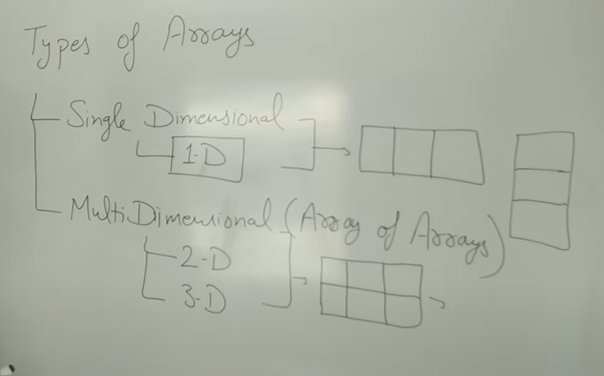 Types of Arrays
Single Dimensional
1-D
MultiDimensional (Array of Arrays)
2-D
3-D